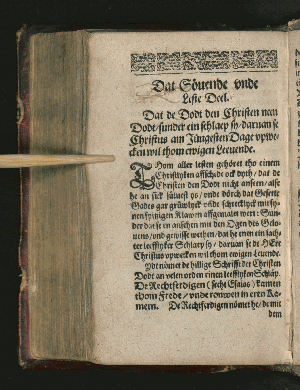 Dat Söuende vnde
Leste Deel.
Dat de Dodt den Christen neen
Dodt/sunder ein schlaep sy/daruan se
Christus am Jüngesten Dage vpwe-
cken wil thom ewigen Leuende.
THom aller lesten gehöret tho einem
Christlyken affschede ock dyth/dat de
Christen den Dodt nicht anseen/alse
he an sick süluest ys/vnde dörch dat Gesette
Gades gar grüwlyck vnde schrecklyck mit sy-
nen spitzigen Klawen affgemalet wert: Sun-
der dat se en anschen mit den Ogen des Gelo-
uens/vnd gewisse weten/dat he men ein sach-
ter leefflyker Schlaep sy/daruan se de HEre
Christus vpwecken wil thom ewigen Leuende.
Ydt nömet de hillige Schrifft der Christen
Dodt an velen orden einen leefflyken Schlaep.
De Rechtferdigen (secht Esaias) kamen
thom Frede/vnde rouwen in eren Ka-
mern. De Rechtferdigen nömet he/de mit
dem